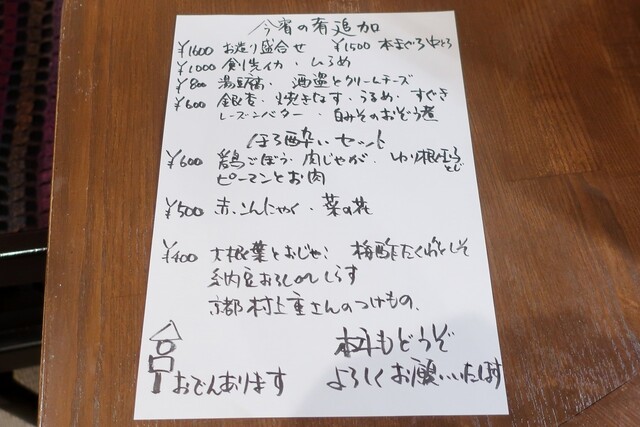 今宵の肴追加
¥1600 お造り盛合せ ¥1500 本まぐろ中とろ
¥1000 剣先イカ・ひらめ
¥800 湯豆腐・酒盗とクリームチーズ
¥600 銀杏・焼きなす・うるめ・すぐき
レーズンバター・白みそのおぞう煮
ほろ酔いセット
¥600 鶏ごぼう・肉じゃが・
ピーマンとお肉
¥500 赤こんにゃく・菜の花
¥400 大根葉とおじゃこ 梅酢たくわんとしそ
納豆おろし しらす
京都村上重さんのつけもの、
もどうぞ
おでんあります よろしくお願いいたします